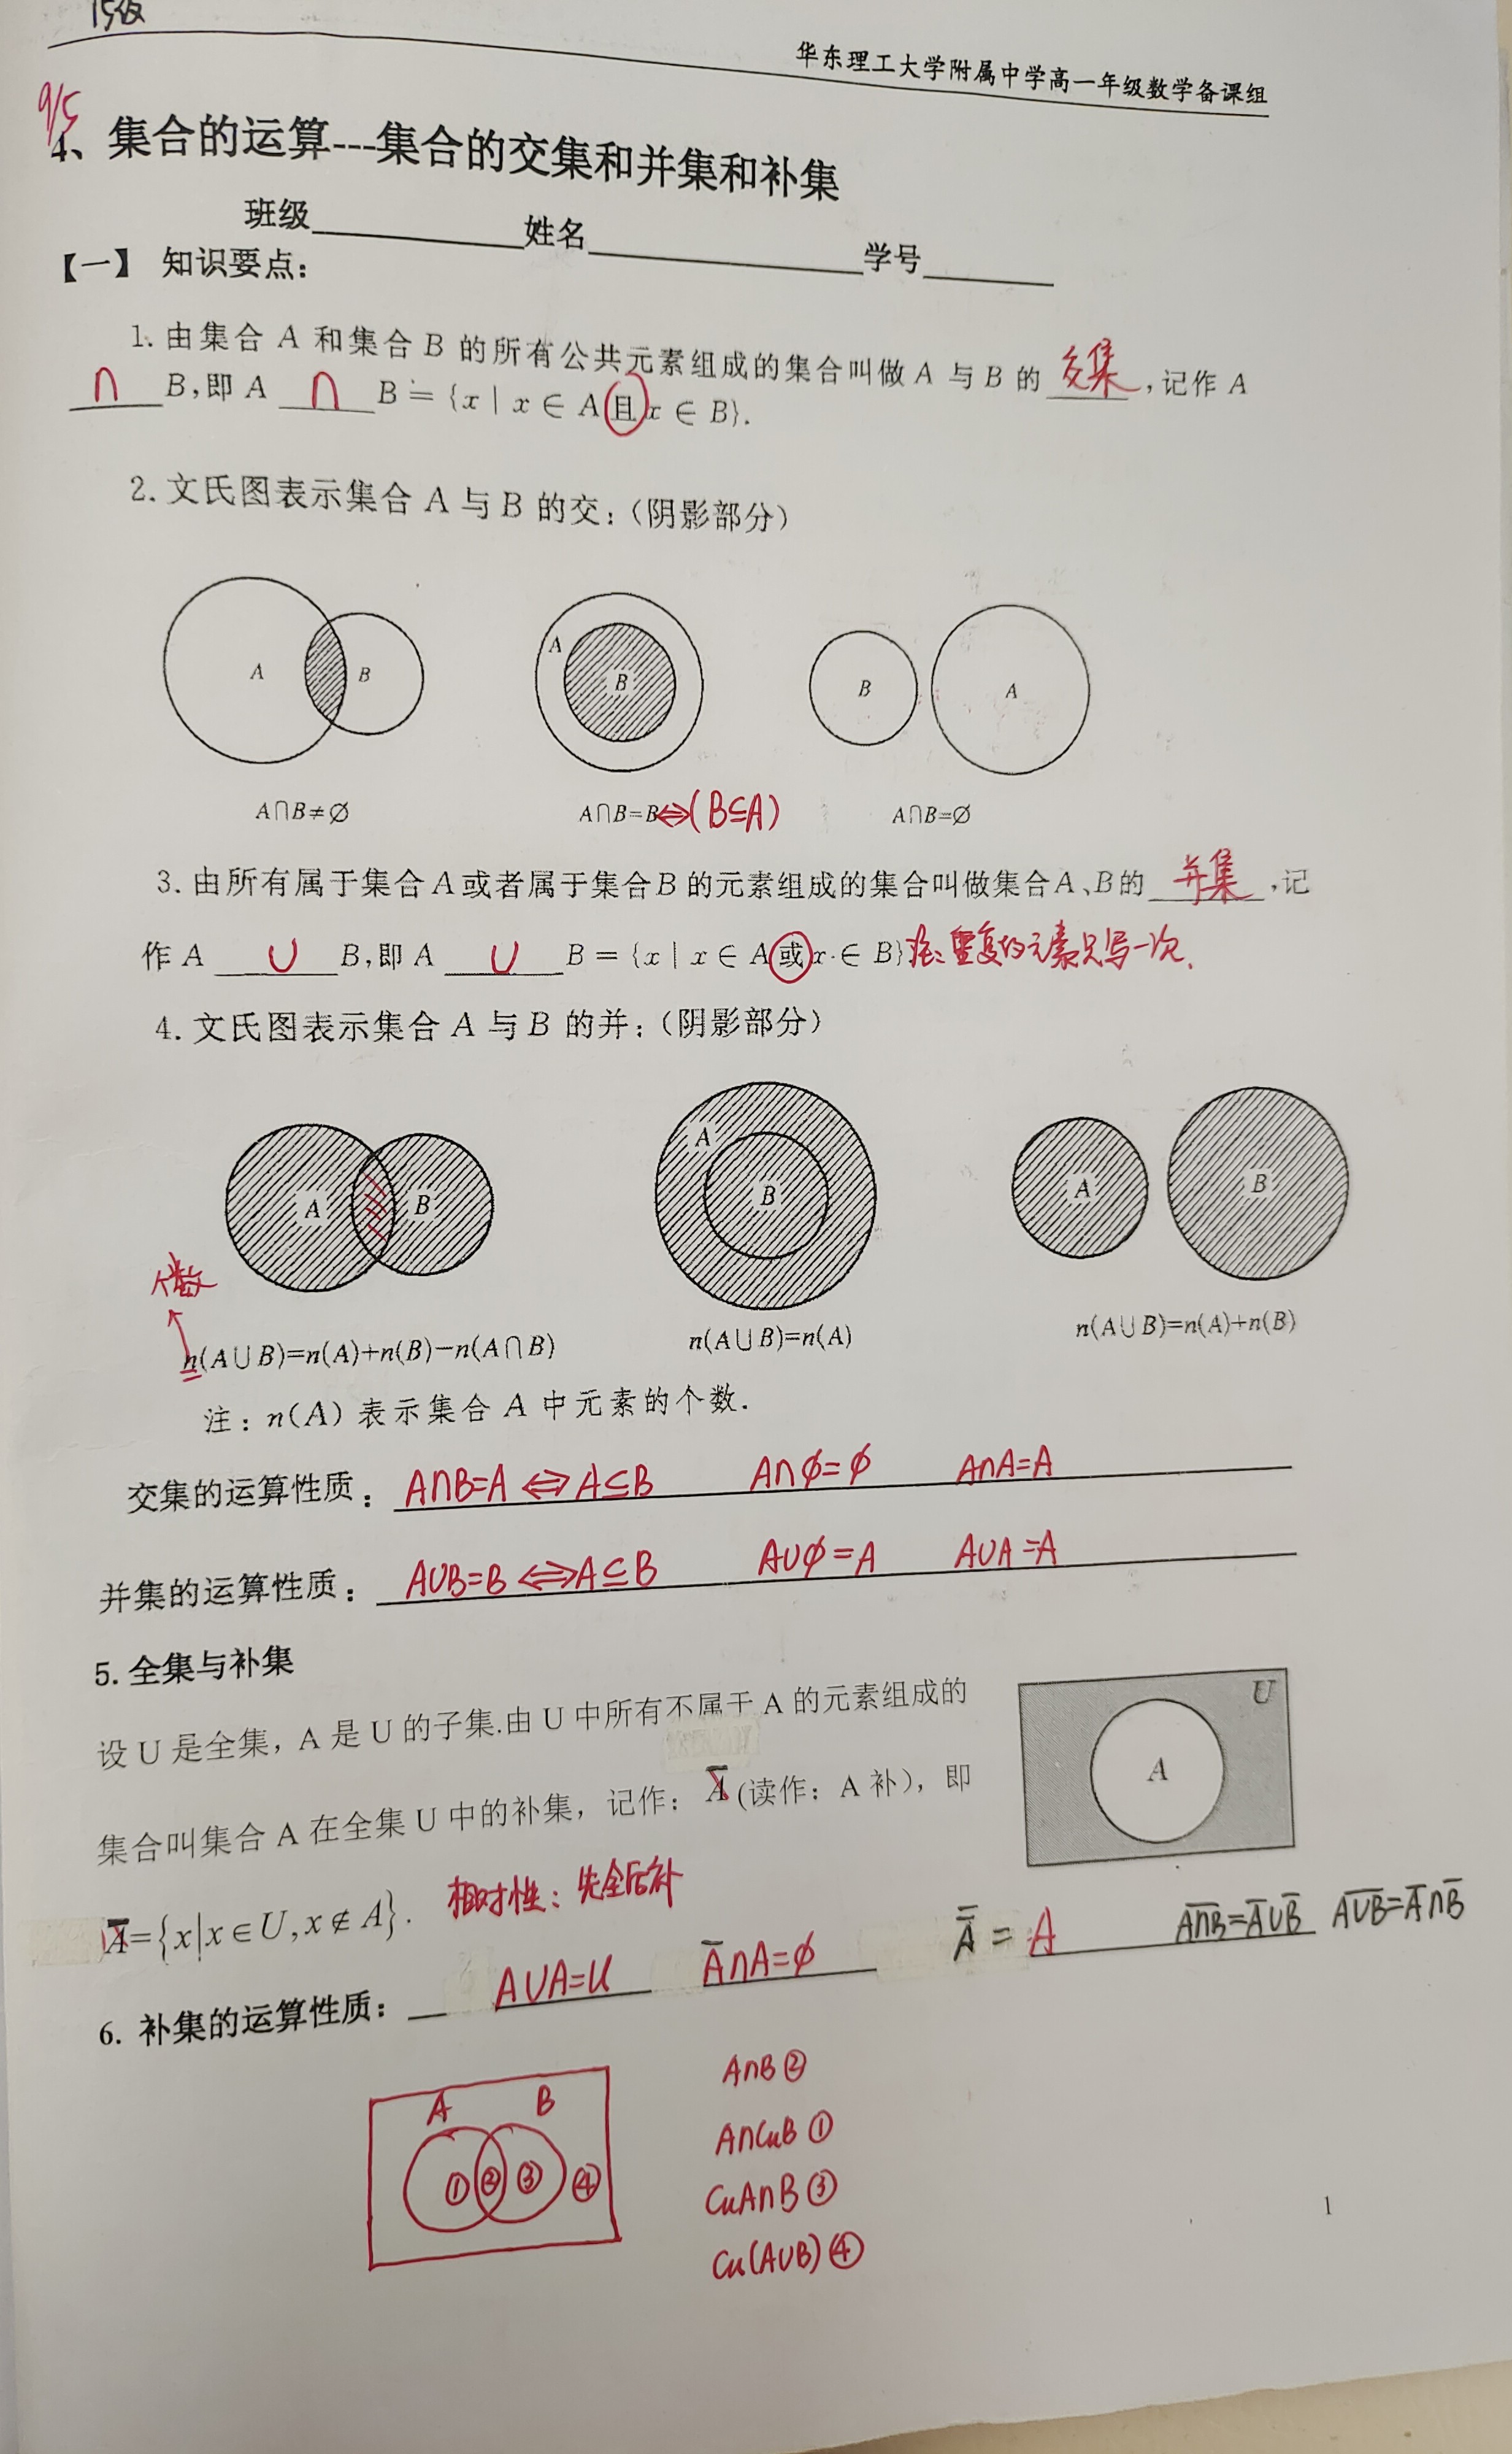 15级
华东理工大学附属中学高一年级数学备课组
9/5
4、集合的运算---集合的交集和并集和补集
班级 姓名 学号
【一】 知识要点：
1. 由集合 A 和集合 B 的所有公共元素组成的集合叫做 A 与 B 的 交集 ,记作 A
∩ B,即 A ∩ B = {x | x ∈ A 且 x ∈ B}.
2. 文氏图表示集合 A 与 B 的交:(阴影部分)
A B A B B A
A∩B≠∅ A∩B=B⇔(B⊆A) A∩B=∅
3. 由所有属于集合A或者属于集合B 的元素组成的集合叫做集合A、B的 并集 ,记
作 A ∪ B,即 A ∪ B = {x | x ∈ A 或 x ∈ B} 注: 重复的元素只写一次.
4. 文氏图表示集合 A 与 B 的并:(阴影部分)
A B A B A B
个数
n(A∪B)=n(A)+n(B)−n(A∩B) n(A∪B)=n(A) n(A∪B)=n(A)+n(B)
注: n(A) 表示集合 A 中元素的个数.
交集的运算性质: A∩B=A ⇔ A⊆B A∩∅=∅ A∩A=A
并集的运算性质: A∪B=B ⇔ A⊆B A∪∅=A A∪A=A
5. 全集与补集
设 U 是全集，A 是 U 的子集.由 U 中所有不属于 A 的元素组成的
集合叫集合 A 在全集 U 中的补集，记作: A̅ (读作: A 补)，即
U
A
A̅={x|x∈U,x∉A}. 相对性: 先全后补
6. 补集的运算性质: A∪A=U A̅∩A=∅ A̿ = A A̅∩̅B̅=A̅∪B̅ A̅∪̅B̅=A̅∩B̅
A B
① ② ③ ④
A∩B ②
A∩CuB ①
CuA∩B ③
Cu(A∪B) ④
1